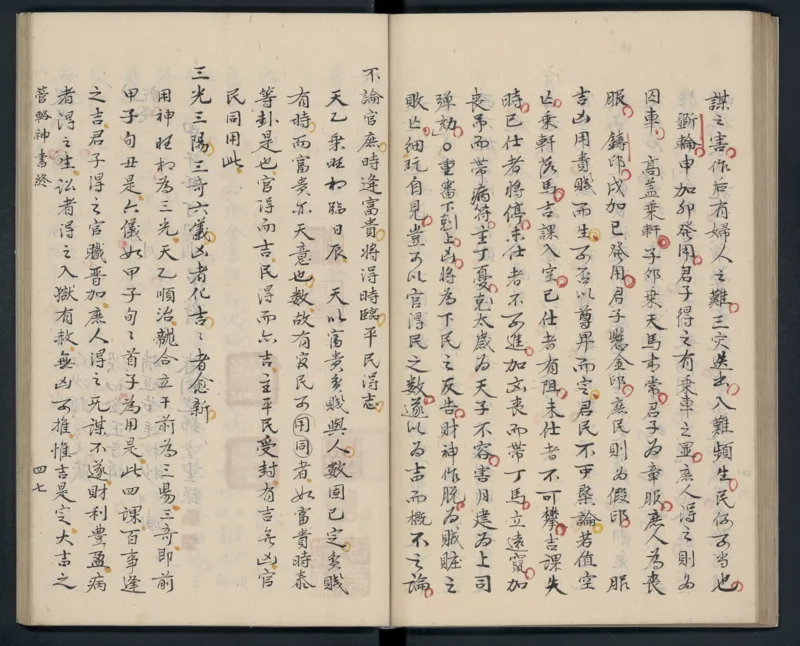 謀之害作后有婦人之難三灾迭出入難頻生民何可当也
斲輪申加卯發用君子得之有乘車之显庶人得之則为
囚車 高盖乗軒子卯乗天馬末常君子为章服庶人为喪
服 鑄印戌加巳發用君子懸金印庶民則为假印 服
吉凶用貴賤而生不可以尊卑而定君民不可槩論若值空
亡乗軒落馬吉課入空已仕者有阻未仕者不可攀吉課失
時已仕者將傳未仕者不可進加玄丧而带丁馬立遠竄加
丧吊而带病符主丁憂尅太歲为天子不容害月建为上司
彈劾○重審下尅上凶將为下民之反告財神作脱为贓賍之
敗亡細玩自見豈可以官得民之數遂以为吉而概不之論
不論官庶時逢富貴將得時臨平民得志
天乙乗旺相臨日辰 天以富貴贫賤與人數固已定贫賤
有時而富貴亦天意也数故有官民可用同者如富貴時泰
等卦是也官得而吉民得而亦吉主平民受封有吉无凶官
民同用此
三光三陽三奇六儀凶者化吉吉者愈新
用神旺相为三光天乙順治龍合立于前为三陽三奇即前
甲子旬丑是六儀如甲子旬旬首子为用是此四課百事逢
之吉君子得之官職晋加庶人得之死謀不遂財利豊盈病
者得之生訟者得之入獄有赦無凶可推惟吉是定大吉之
管輅神書終
四七